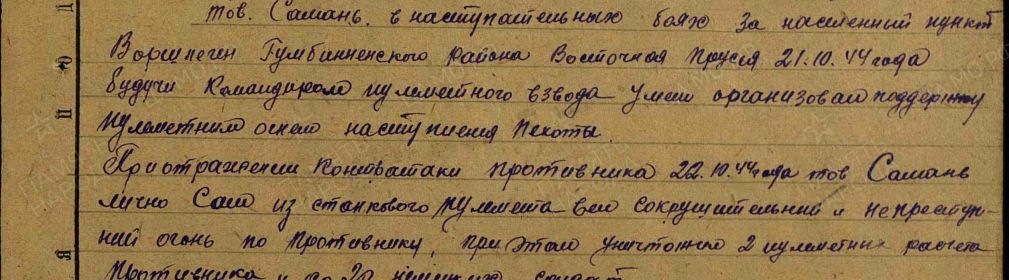 тов. Самань. в наступательных боях за населенный пункт
Воршлеген Гумбинненского района Восточная Прусия 21.10.44 года
будучи командиром пулеметного взвода умело организовал поддержку
пулеметним огнем наступления пехоты.
При отражении контратаки противника 22.10.44 года тов Самань
лично сам из станкового пулемета вел сокрушительний и непреступ-
ний огонь по противнику, при этом уничтожил 2 пулеметних расчета
противника и до 20 немецких солдат